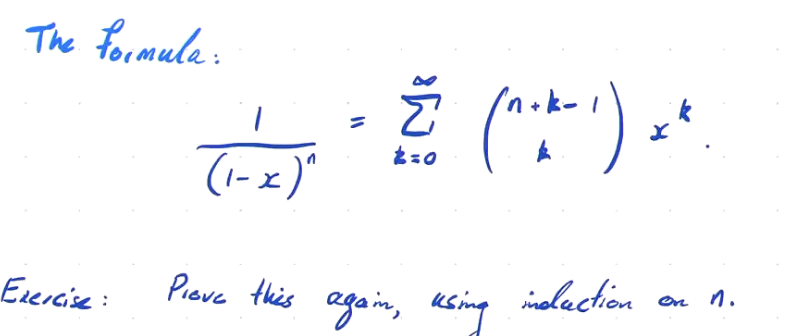 The Formula:
1/(1-x)^n = ∑_{k=0}^{∞} (n+k-1 \choose k) x^k.
Exercise: Prove this again, using induction on n.